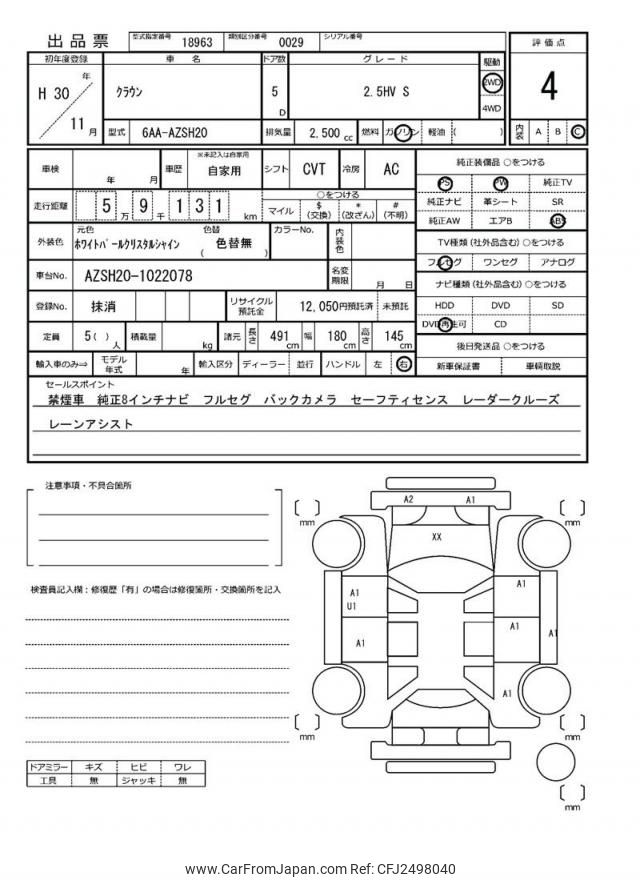 出品票 型式指定番号 18963 類別区分番号 0029 シリアル番号
初年度登録 車 名 ドア数 グレード 駆動 評価点
H 30 年 11 月 クラウン 5 D 2.5HV S 2WD 4WD 4
型式 6AA-AZSH20 排気量 2,500 cc 燃料 ガソリン 軽油 ( ) 内装 A B C
車検 年 月 車歴 ※未記入は自家用 自家用 シフト CVT 冷房 AC 純正装備品 ○をつける
PS PW 純正TV
走行距離 5 万 9 千 1 3 1 km ○をつける マイル $ (交換) * (改ざん) # (不明) 純正ナビ 革シート SR
純正AW エアB ABS
外装色 元色 ホワイトパールクリスタルシャイン 色替 ( 色替無 ) カラーNo. 内装色 TV種類 (社外品含む) ○をつける
フルセグ ワンセグ アナログ
車台No. AZSH20-1022078 名変期限 月 日 ナビ種類 (社外品含む) ○をつける
登録No. 抹消 リサイクル預託金 12,050円預託済 未預託 HDD DVD SD
DVD再生可 CD
定員 5 ( ) 人 積載量 kg 諸元 長さ 491 cm 幅 180 cm 高さ 145 cm 後日発送品 ○をつける
輸入車のみ⇒ モデル年式 年 輸入区分 ディーラー 並行 ハンドル 左 右 新車保証書 車輌取説
セールスポイント
禁煙車 純正8インチナビ フルセグ バックカメラ セーフティセンス レーダークルーズ
レーンアシスト
注意事項・不具合箇所
検査員記入欄：修復歴「有」の場合は修復箇所・交換箇所を記入
A2 A1
mm mm
XX
A1 A1
U1
A1 A1 A1
A1
mm mm
mm
ドアミラー キズ ヒビ ワレ
工具 無 ジャッキ 無
www.CarFromJapan.com Ref: CFJ2498040